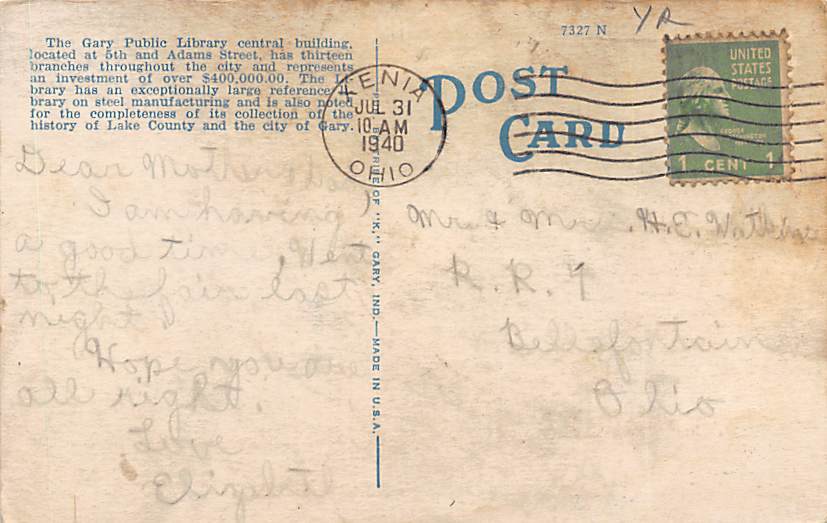 The Gary Public Library central building,
located at 5th and Adams Street, has thirteen
branches throughout the city and represents
an investment of over $400,000.00. The Li-
brary has an exceptionally large reference li-
brary on steel manufacturing and is also noted
for the completeness of its collection of the
history of Lake County and the city of Gary.
Dear Mother
I am having
a good time. Went
to the fair last
night.
Hope you are
all right.
Love
"K," GARY, IND.—MADE IN U.S.A.
7327 N
POST
CARD
XENIA
JUL 31
10 AM
1940
OHIO
UNITED
STATES
POSTAGE
GEORGE
WASHINGTON
1 CENT 1
Mr. & Mrs. H.E.
R.R. 4
Bellefontaine
Ohio